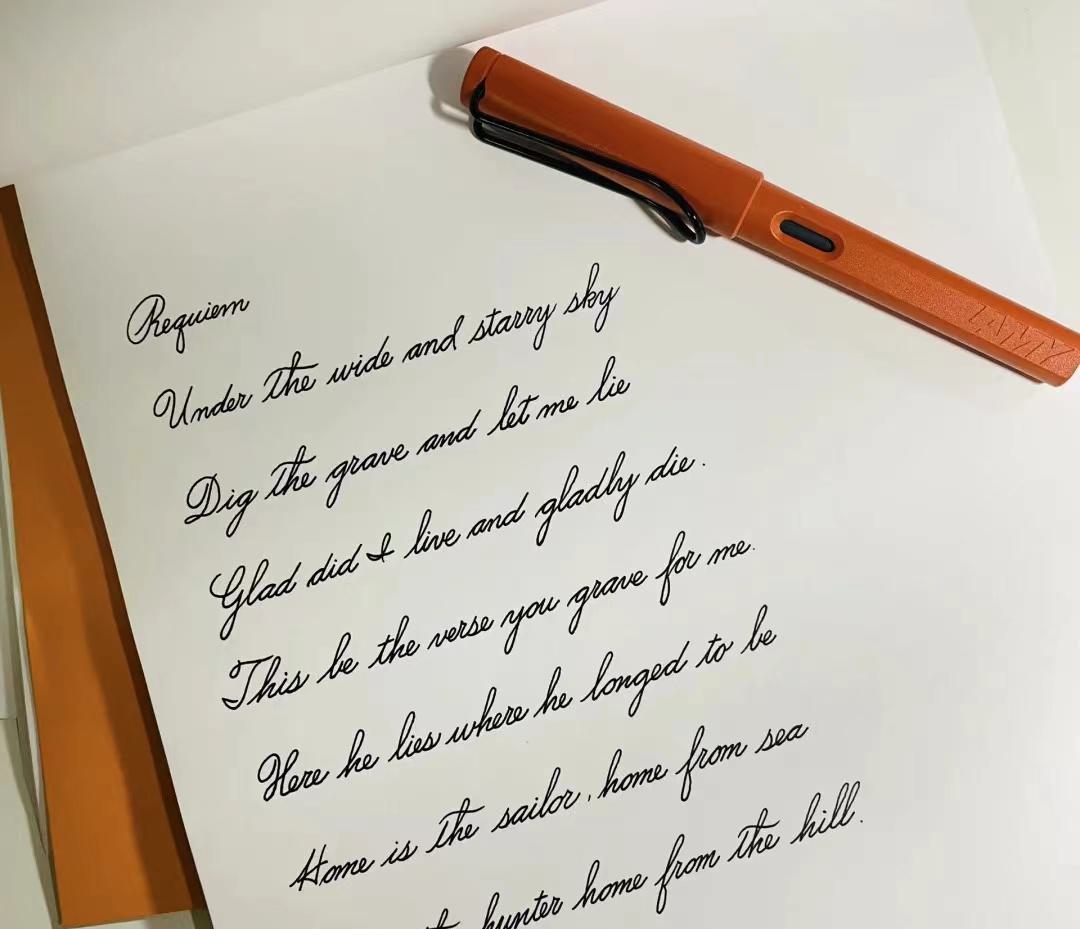 Requiem
Under the wide and starry sky
Dig the grave and let me lie
Glad did I live and gladly die.
This be the verse you grave for me.
Here he lies where he longed to be
Home is the sailor, home from sea
hunter home from the hill.
LAMY